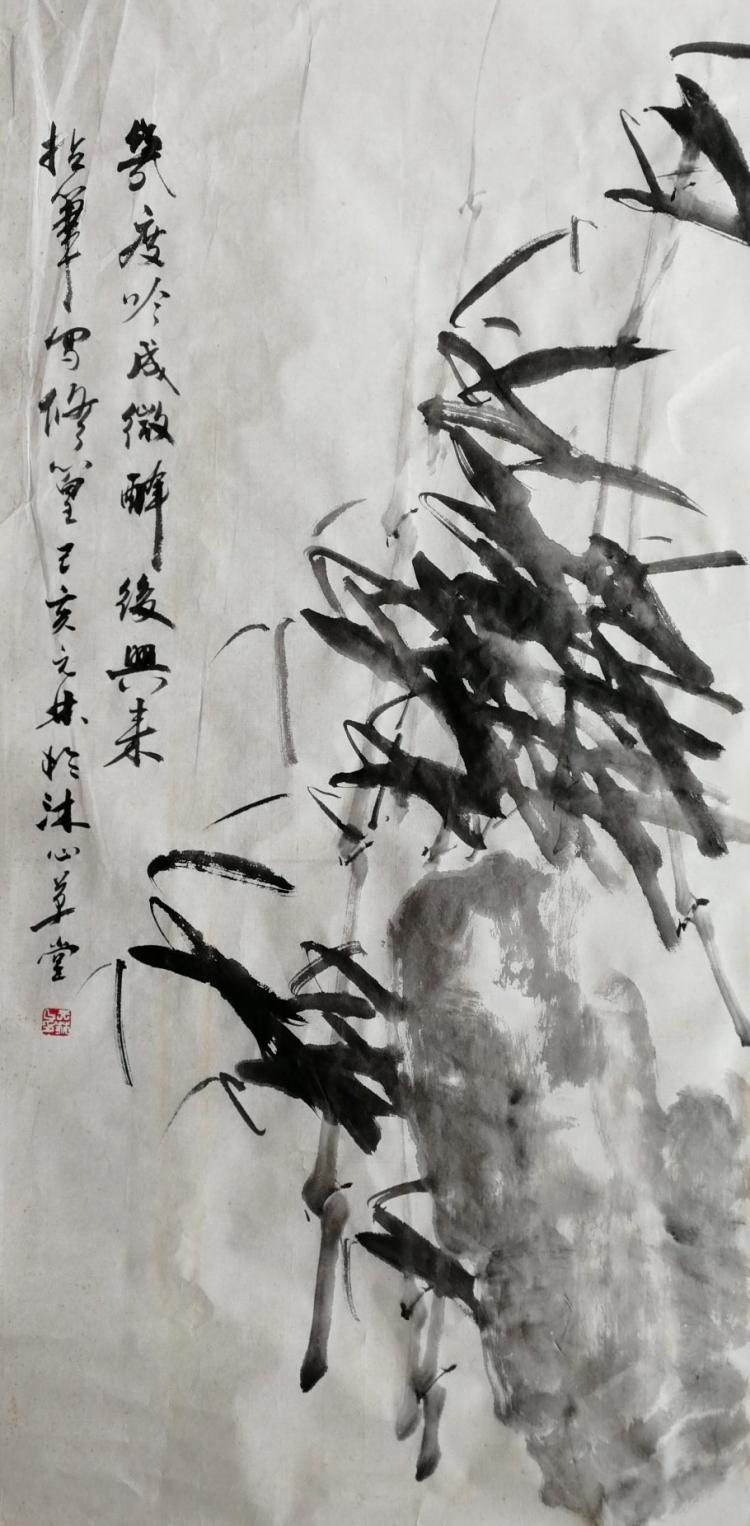 幾度吟成微醉後興来
拈筆写修篁己亥之林於沐心草堂